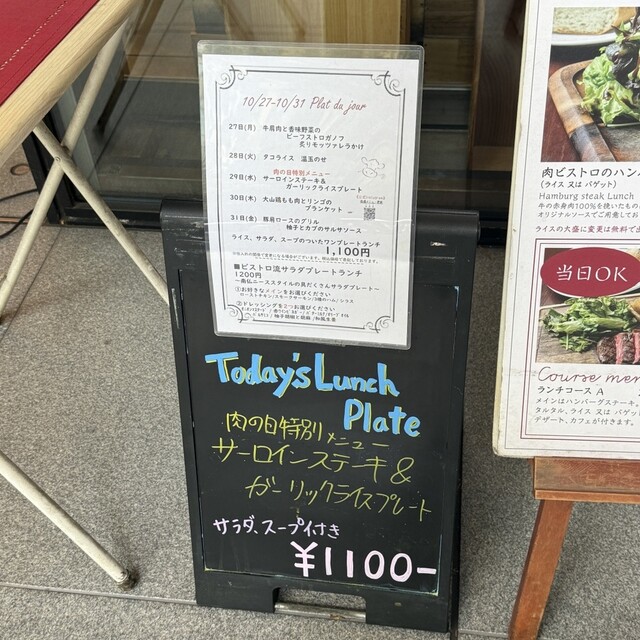 10/27-10/31 Plat du jour
27日(月) 牛肩肉と香味野菜の
ビーフストロガノフ
炙りモッツァレラかけ
28日(火) タコライス 温玉のせ
肉の日特別メニュー
29日(水) サーロインステーキ&
ガーリックライスプレート
30日(木) 大山鶏もも肉とリンゴの
ブランケット
31日(金) 豚肩ロースのグリル
柚子とカブのサルサソース
ライス、サラダ、スープのついたワンプレートランチ
1,100円
■ビストロ流サラダプレートランチ
1200円
～南仏ニーススタイルの具だくさんサラダプレート～
①お好きなメインをお選びください
ローストチキン/スモークサーモン/3種のハム/シラス
②ドレッシングを2つお選びください
Today's Lunch
Plate
肉の日特別メニュー
サーロインステーキ&
ガーリックライスプレート
サラダ、スープ付き
¥1100-
肉ビストロのハン
(ライス 又は バゲット)
Hamburg steak Lunch
牛の赤身肉100%を挽いたもの
オリジナルソースでご用意してお
ライスの大盛に変更は無料で出
当日OK
Course men
ランチコース A
メインはハンバーグステーキ。
タルタル、ライス 又は バゲッ
デザート、カフェが付きます。